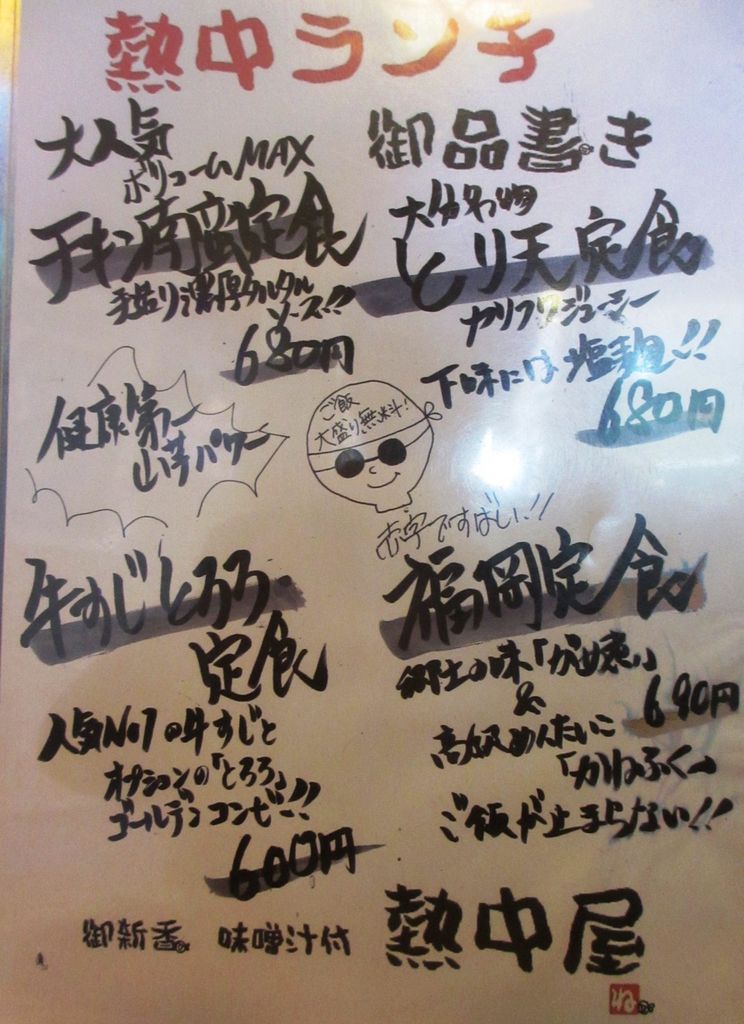 熱中ランチ
御品書き
大分名物
とり天定食
カリフワジューシー
下味には塩麹!!
680円
大人気
ボリュームMAX
チキン南蛮定食
手造り濃厚タルタル
ソース!!
680円
健康第一
山芋パワー
ご飯
大盛り無料!
赤字ですばい!!
福岡定食
郷土の味「がめ煮」
&
690円
高級めんたいこ
「かねふく」
ご飯が止まらない!!
牛すじとろろ
定食
人気No1の牛すじと
オプションの「とろろ」
ゴールデンコンビ!!
600円
御新香 味噌汁付
熱中屋